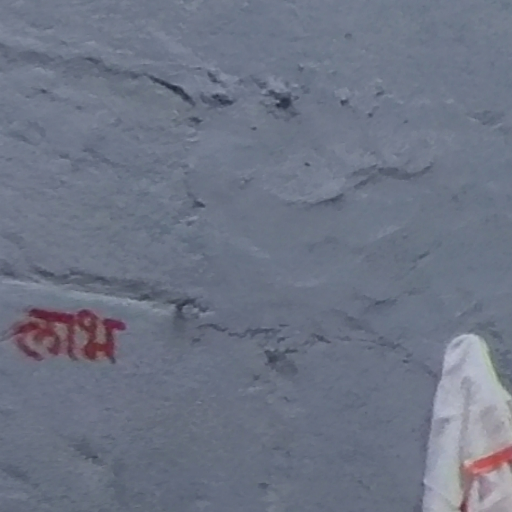 लाभ